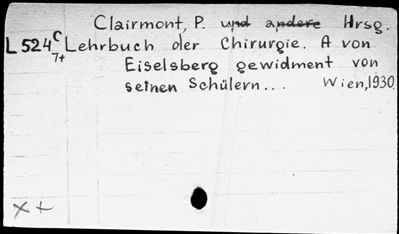 Clairmont, P. und andere Hrsg.
L 524 C Lehrbuch der Chirurgie. A von
7+
Eiselsberg gewidment von
seinen Schülern... Wien, 1930.
X +